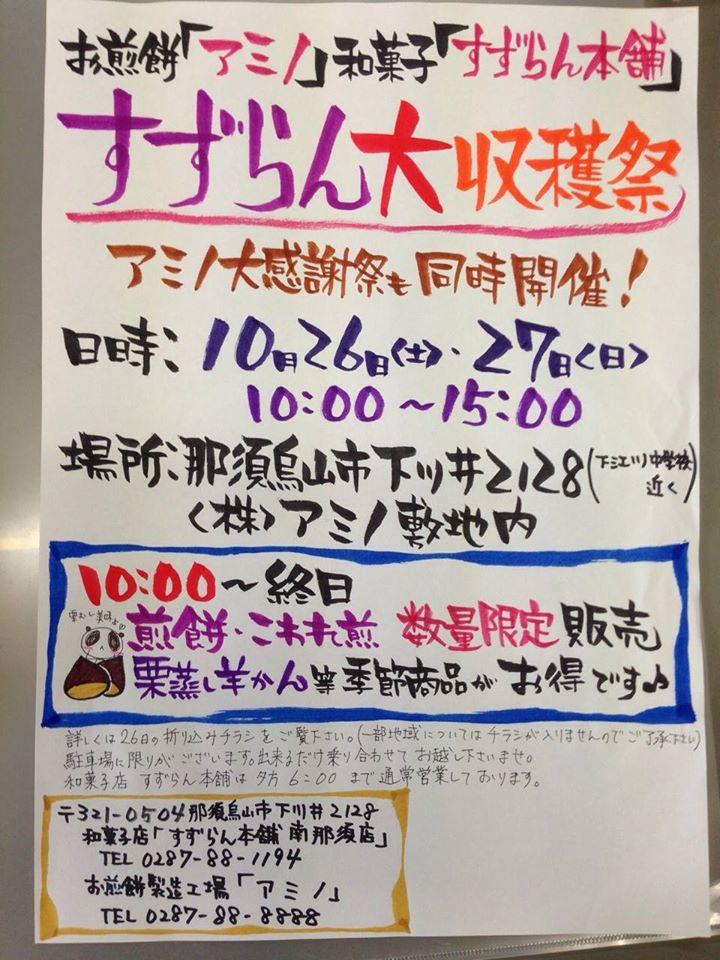 お煎餅「アミノ」和菓子「すずらん本舗」
すずらん大収穫祭
アミノ大感謝祭も同時開催！
日時：10月26日〈土〉・27日〈日〉
10:00～15:00
場所：那須烏山市下川井2128（下江川中学校近く）
〈株〉アミノ敷地内
10:00～終日
栗むし美味よ♡
煎餅・こわれ煎 数量限定販売
栗蒸し羊かん等季節商品がお得です♪
詳しくは26日の折り込みチラシをご覧下さい。（一部地域についてはチラシが入りませんのでご了承下さい）
駐車場に限りがございます。出来るだけ乗り合わせてお越し下さいませ。
和菓子店 すずらん本舗は夕方6:00まで通常営業しております。
〒321-0504 那須烏山市下川井2128
和菓子店「すずらん本舗 南那須店」
TEL 0287-88-1194
お煎餅製造工場「アミノ」
TEL 0287-88-8888